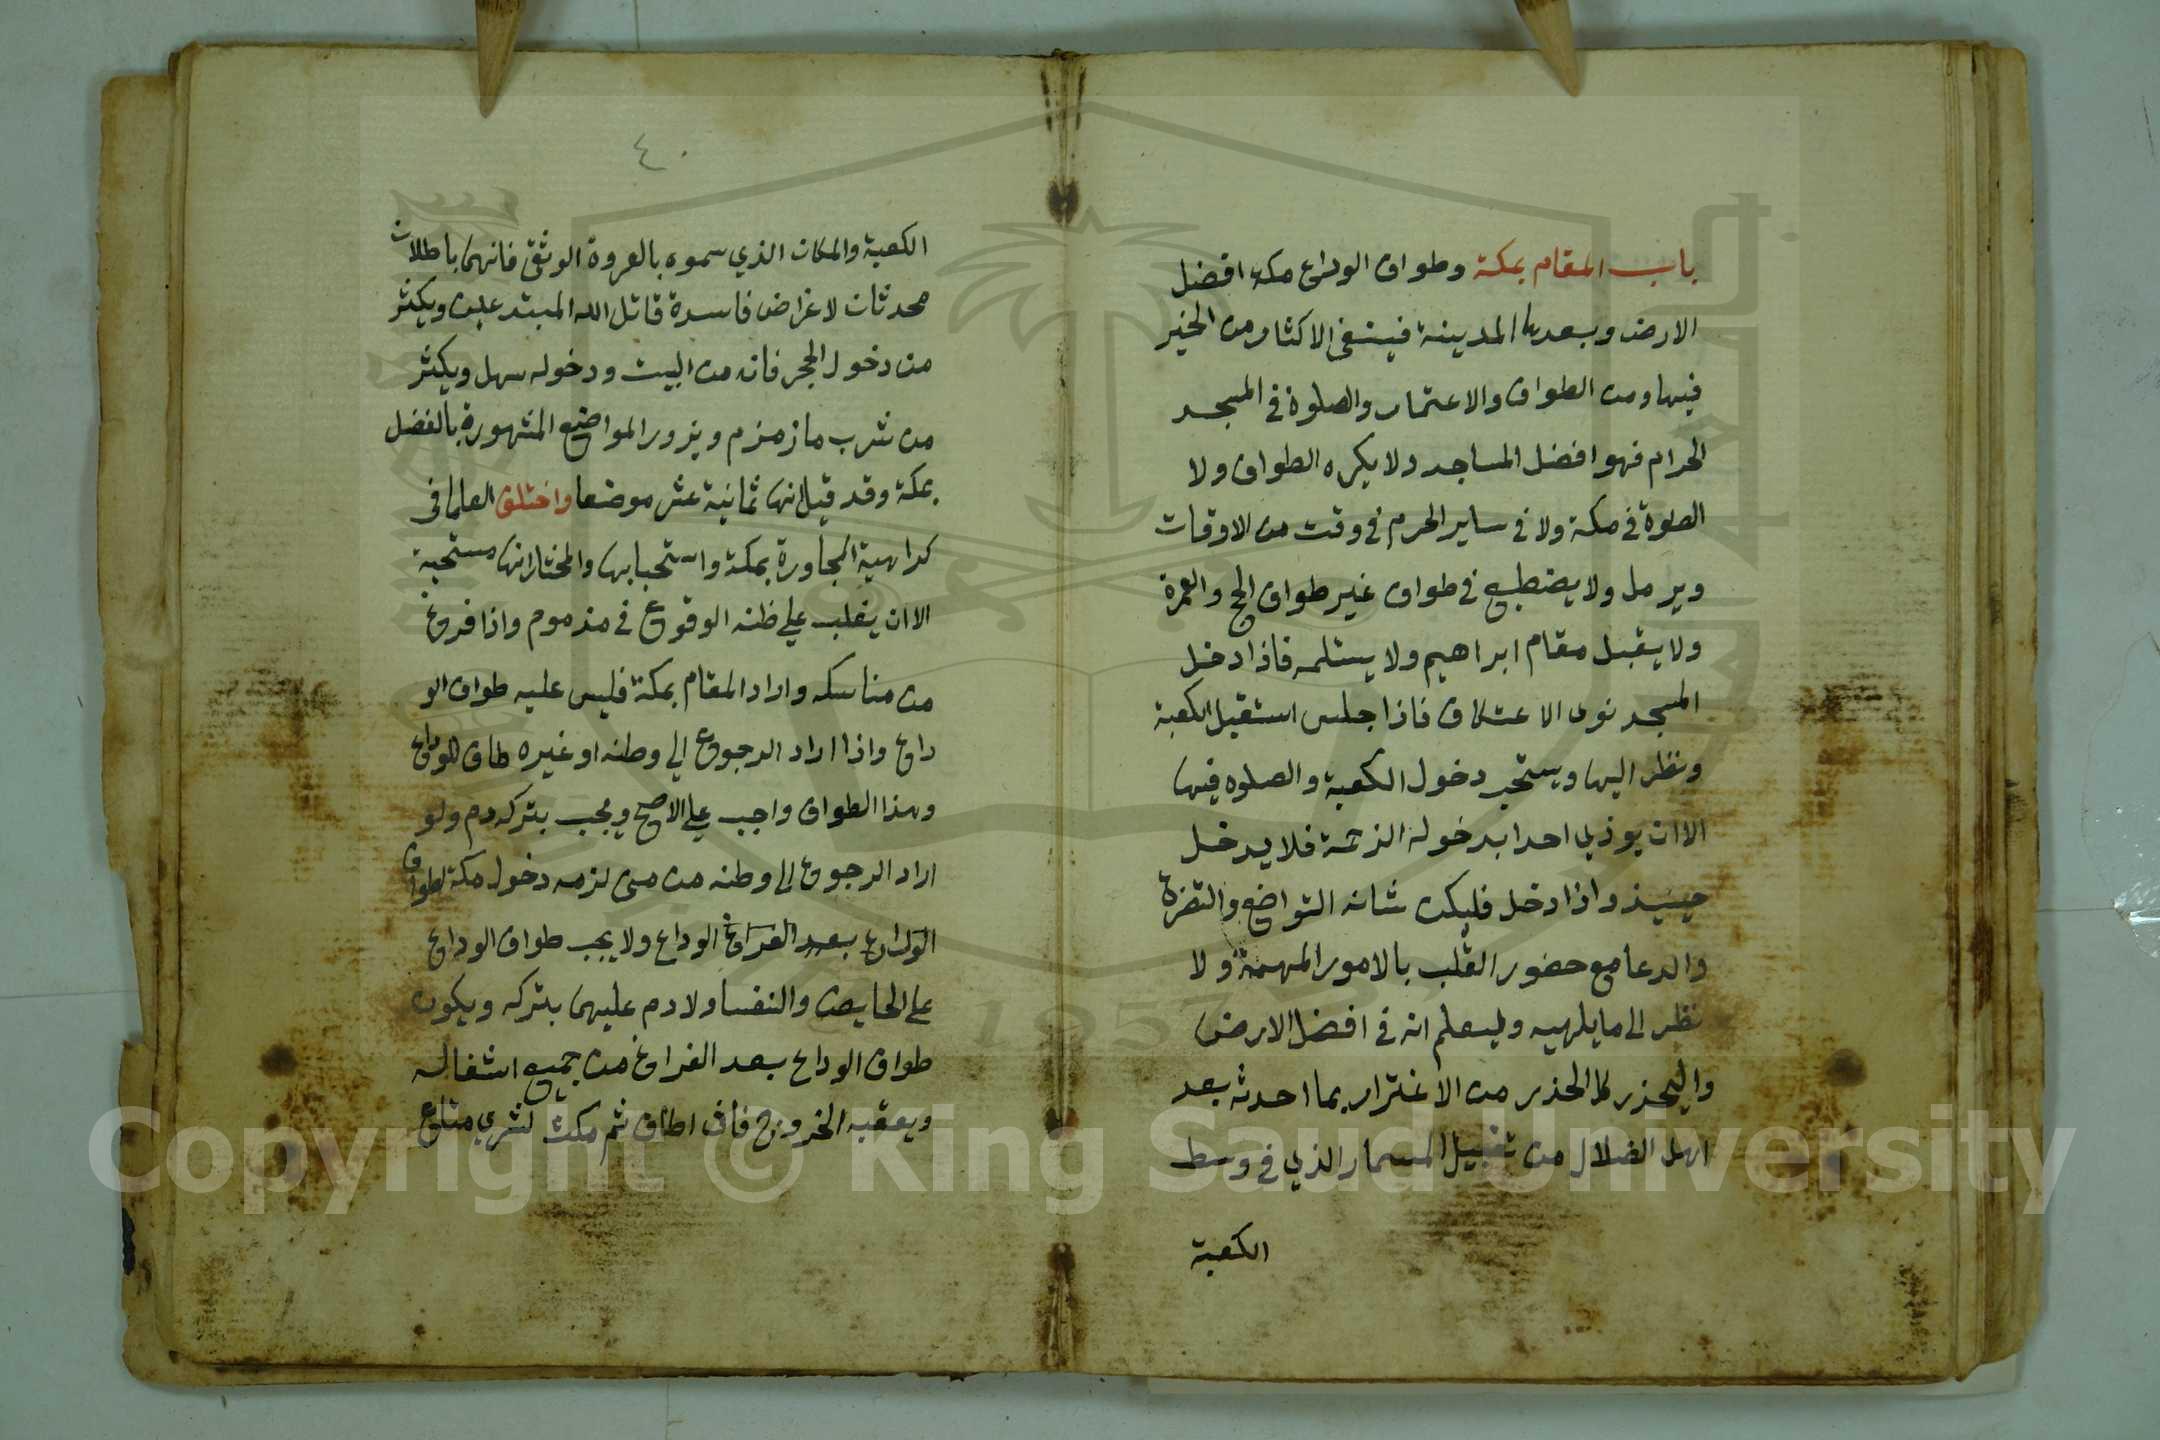 باب المقام بمكة وطواف الوداع مكة افضل
الارض وبعدها المدينة فينبغي الاكثار من الخير
فيها ومن الطواف والاعتمار والصلوة في المسجد
الحرام فهو افضل المساجد ولا يكره الطواف ولا
الصلوة في مكة ولا في ساير الحرم في وقت من الاوقات
ويرمل ولا يضطبع في طواف غير طواف الحج والعمرة
ولا يقبل مقام ابراهيم ولا يستلمه فاذا دخل
المسجد نوى الاعتكاف فاذا جلس استقبل الكعبة
ونظر اليها ويستحب دخول الكعبة والصلوه فيها
الا ان يوذي احدا بدخوله الزحمة فلا يدخل
حينيذ واذا دخل فليكن شانه التواضع والتضرع
والدعا مع حضور القلب بالامور المهمة ولا
نظر الى ما يلهيه وليعلم انه في افضل الارض
واليحذر كل الحذر من الاغترار بما احدثه بعد
اهل الضلال من تقبيل المسمار الذي في وسط
الكعبة
٤٠
الكعبة والمكان الذي سموه بالعروة الوثقى فانهما باطلان
محدثان لاغراض فاسدة قاتل الله المبتدعين ويكثر
من دخول الحجر فانه من البيت ودخوله سهل ويكثر
من شرب ما زمزم ويزور المواضع المشهورة بالفضل
بمكة وقد قيل انها ثمانية عشر موضعا واختلف العلما في
كراهية المجاورة بمكة واستحبابها والمختار انها مستحبة
الا ان يغلب على ظنه الوقوع في مذموم واذا فرغ
من مناسكه واراد المقام بمكة فليس عليه طواف الو
داع واذا اراد الرجوع الي وطنه او غيره طاف للوداع
وهذا الطواف واجب على الاصح ويجب بتركه دم ولو
اراد الرجوع الى وطنه من منى لزمه دخول مكة لطواف
الوداع بعد الفراغ الوداع ولا يجب طواف الوداع
على الحايض والنفسا ولا دم عليهما بتركه ويكون
طواف الوداع بعد الفراغ من جميع اشغاله
ويعقبه الخروج فان اطاف ثم مكث لشري متاع
Copyright © King Saud University
1957